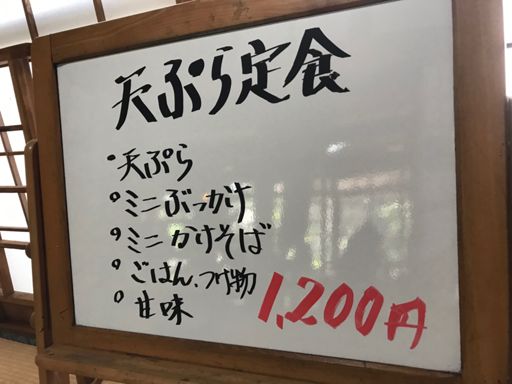 天ぷら定食
・天ぷら
・ミニぶっかけ
・ミニかけそば
・ごはん、つけ物
・甘味
1,200円